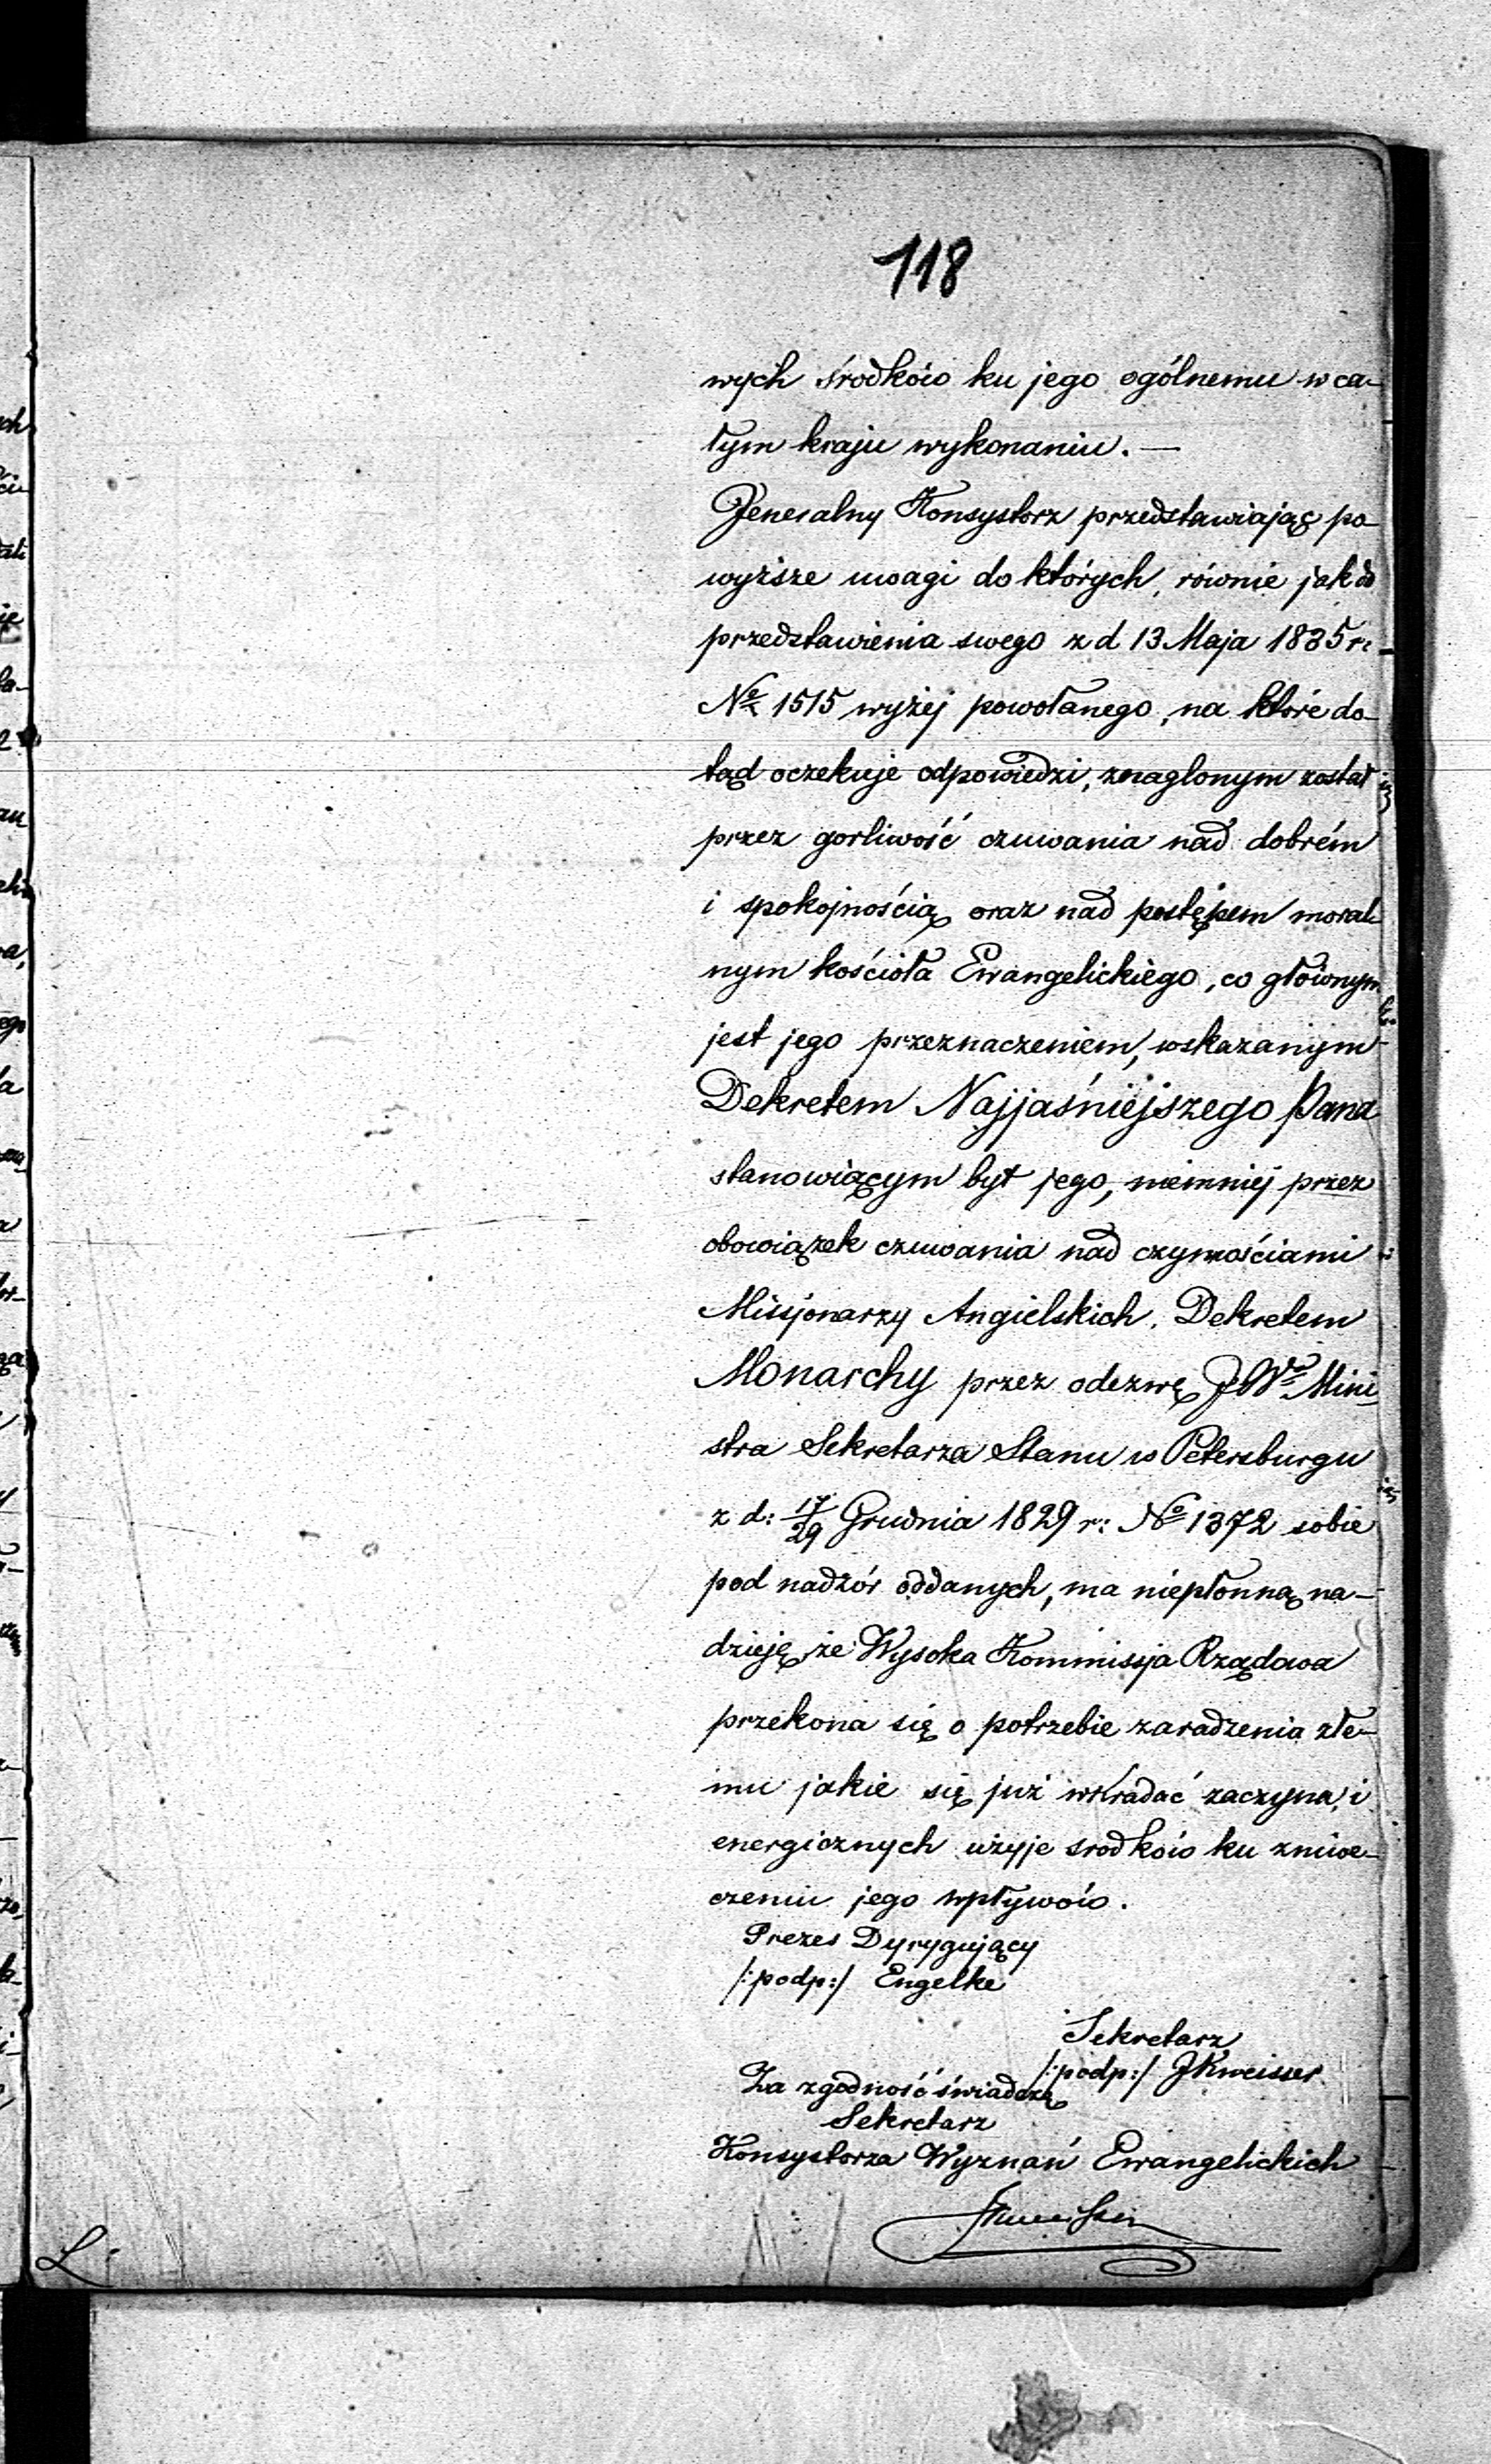 118
wych środków ku jego ogólnemu w ca-
łym kraju wykonaniu. —
Jeneralny Konsystorz przedstawiając po-
wyższe uwagi do których, równie jak do
przedstawienia swego z d 13 Maja 1835 r:
No 1515 wyżej powołanego, na które do-
tąd oczekuje odpowiedzi, znaglonym został
przez gorliwość czuwania nad dobrém
i spokojnością oraz nad postępem moral-
nym kościoła Ewangelickiego, co głównym
jest jego przeznaczeniem, wskazanym
Dekretem Najjaśniejszego Pana
stanowiącym byt jego, niemniej przez
obowiązek czuwania nad czynnościami
Missjonarzy Angielskich, Dekretem
Monarchy przez odezwę JWo Mini-
stra Sekretarza Stanu w Petersburgu
z d: 17/29 Grudnia 1829 r: No 1372 sobie
pod nadzór oddanych, ma niepłonną na-
dzieję, że Wysoka Kommissja Rządowa
przekona się o potrzebie zaradzenia złe-
mu jakie się już wkradać zaczyna, i
energicznych użyje srodków ku zniwe-
czeniu jego wpływów.
Prezes Dyrygujący
/:podp:/ Engelke
Sekretarz
/:podp:/ JKweisser
Za zgodność świadczę
Sekretarz
Konsystorza Wyznań Ewangelickich